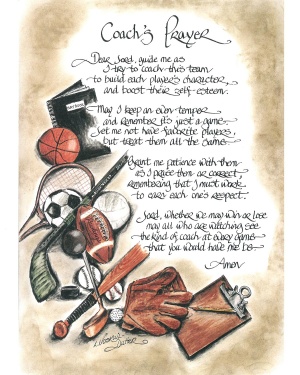 Coach's Prayer
Dear Lord, guide me as
I try to coach this team
to build each player's character
and boost their self esteem.
May I keep an even temper
and remember it's just a game.
Let me not have favorite players,
but treat them all the same.
Grant me patience with them
as I praise them or correct
Remembering that I must work
to earn each one's respect.
Lord, whether we may win or lose
may all who are watching see
the kind of coach at every game
that you would have me be.
Amen